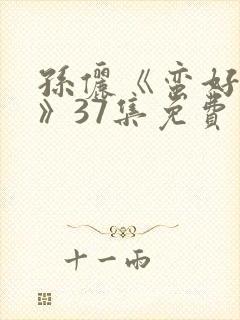 孫儷《蛮好
》37集免費
十一雨